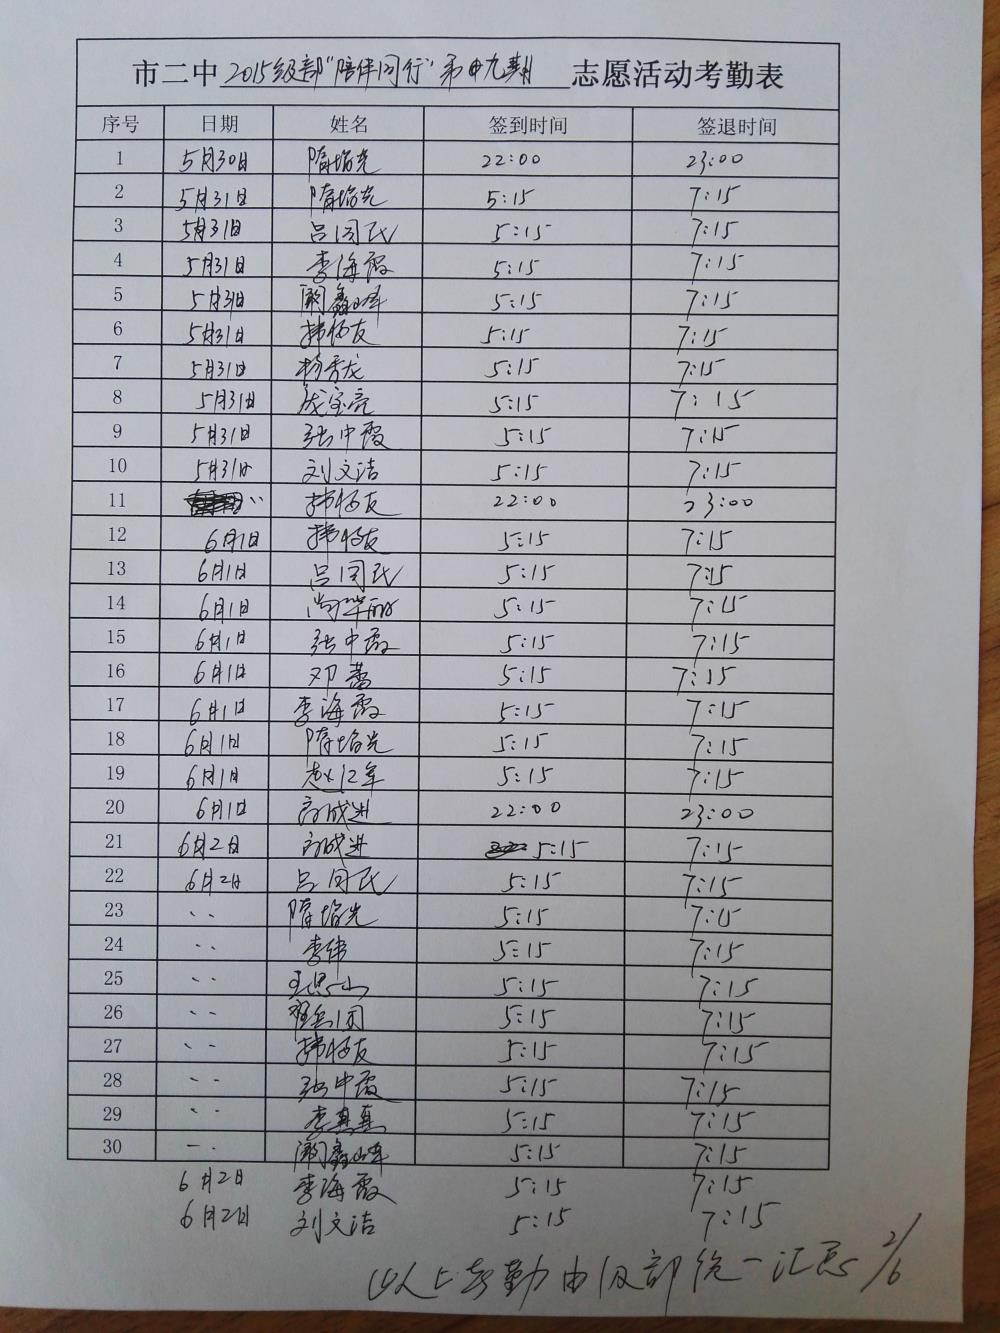 市二中 2015级部"陪伴同行"第十九期 志愿活动考勤表
序号 日期 姓名 签到时间 签退时间
1 5月30日 隋培光 22:00 23:00
2 5月31日 隋培光 5:15 7:15
3 5月31日 吕同民 5:15 7:15
4 5月31日 李海霞 5:15 7:15
5 5月31日 阚鑫峰 5:15 7:15
6 5月31日 韩友 5:15 7:15
7 5月31日 杨秀龙 5:15 7:15
8 5月31日 宝亮 5:15 7:15
9 5月31日 张中霞 5:15 7:15
10 5月31日 刘文洁 5:15 7:15
11 韩友 22:00 23:00
12 6月1日 韩友 5:15 7:15
13 6月1日 吕同民 5:15 7:15
14 6月1日 尚华丽 5:15 7:15
15 6月1日 张中霞 5:15 7:15
16 6月1日 邓蕾 5:15 7:15
17 6月1日 李海霞 5:15 7:15
18 6月1日 隋培光 5:15 7:15
19 6月1日 赵红军 5:15 7:15
20 6月1日 成进 22:00 23:00
21 6月2日 成进 5:15 7:15
22 6月2日 吕同民 5:15 7:15
23 、、 隋培光 5:15 7:15
24 、、 李伟 5:15 7:15
25 、、 王思山 5:15 7:15
26 、、 兵团 5:15 7:15
27 、、 韩友 5:15 7:15
28 、、 张中霞 5:15 7:15
29 、、 李真真 5:15 7:15
30 、、 阚鑫峰 5:15 7:15
6月2日 李海霞 5:15 7:15
6月2日 刘文洁 5:15 7:15
以上考勤由级部统一汇总 2/6